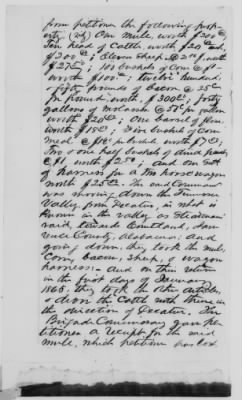 from petitioner the following prop-
erty, (viz) One mule, worth $200
ten head of Cattle worth $20 each,
$200; Eleven Sheep @ worth
$27; 100 bushels of Corn @ $1
worth $100; twelve hundred
& fifty pounds of bacon @ 25c
pr pound, worth, $300; forty
gallons of @ 50c pr
worth $20; One barrel of flour
worth $15; five bushels of corn
meal @ $1 pr bushel worth $5;
Two & one half bushels of dried
@ $1 worth $2.50; and one Set
of harness for a two horse wagon
worth $25. The said
was moving down the Tennessee
Valley, from Decatur, in what is
known in the valley as
raid, towards Courtland, Law-
rence County, Alabama; And
going down, they took the mule,
Corn, bacon, Sheep, & wagon
harness - And on their return
in the first days of January
1865, they took the other articles,
& drove the Cattle with them in
the direction of Decatur. The
Brigade Commissary gave Pe-
titioner a receipt for the said
mule, which petitioner has lost